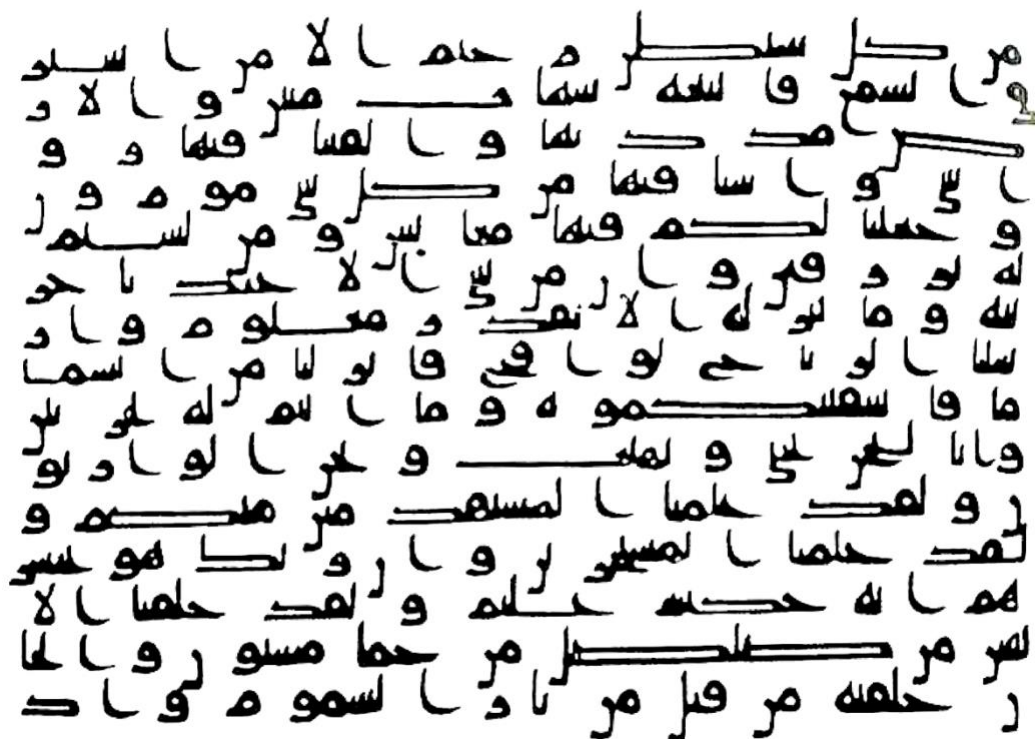 من كل شيطن رجيم الا من استر
ق السمع فاتبعه شهاب مبين والار
ض مددنها والقينا فيها رو
اسي وانبتنا فيها من كل شي موزون
وجعلنا لكم فيها معايش ومن لستم
له برزقين وان من شي الا عندنا خز
ئنه وما ننزله الا بقدر معلوم وار
سلنا الرياح لواقح فانزلنا من السما
ما فاسقينكموه وما انتم له بخزنين
وانا لنحن نحي ونميت ونحن الوارثو
ن ولقد علمنا المستقدمين منكم و
لقد علمنا المستخرين وان ربك هو يحشر
هم انه حكيم عليم ولقد خلقنا الا
نسن من صلصل من حما مسنون والجا
ن خلقنه من قبل من نار السموم واذ